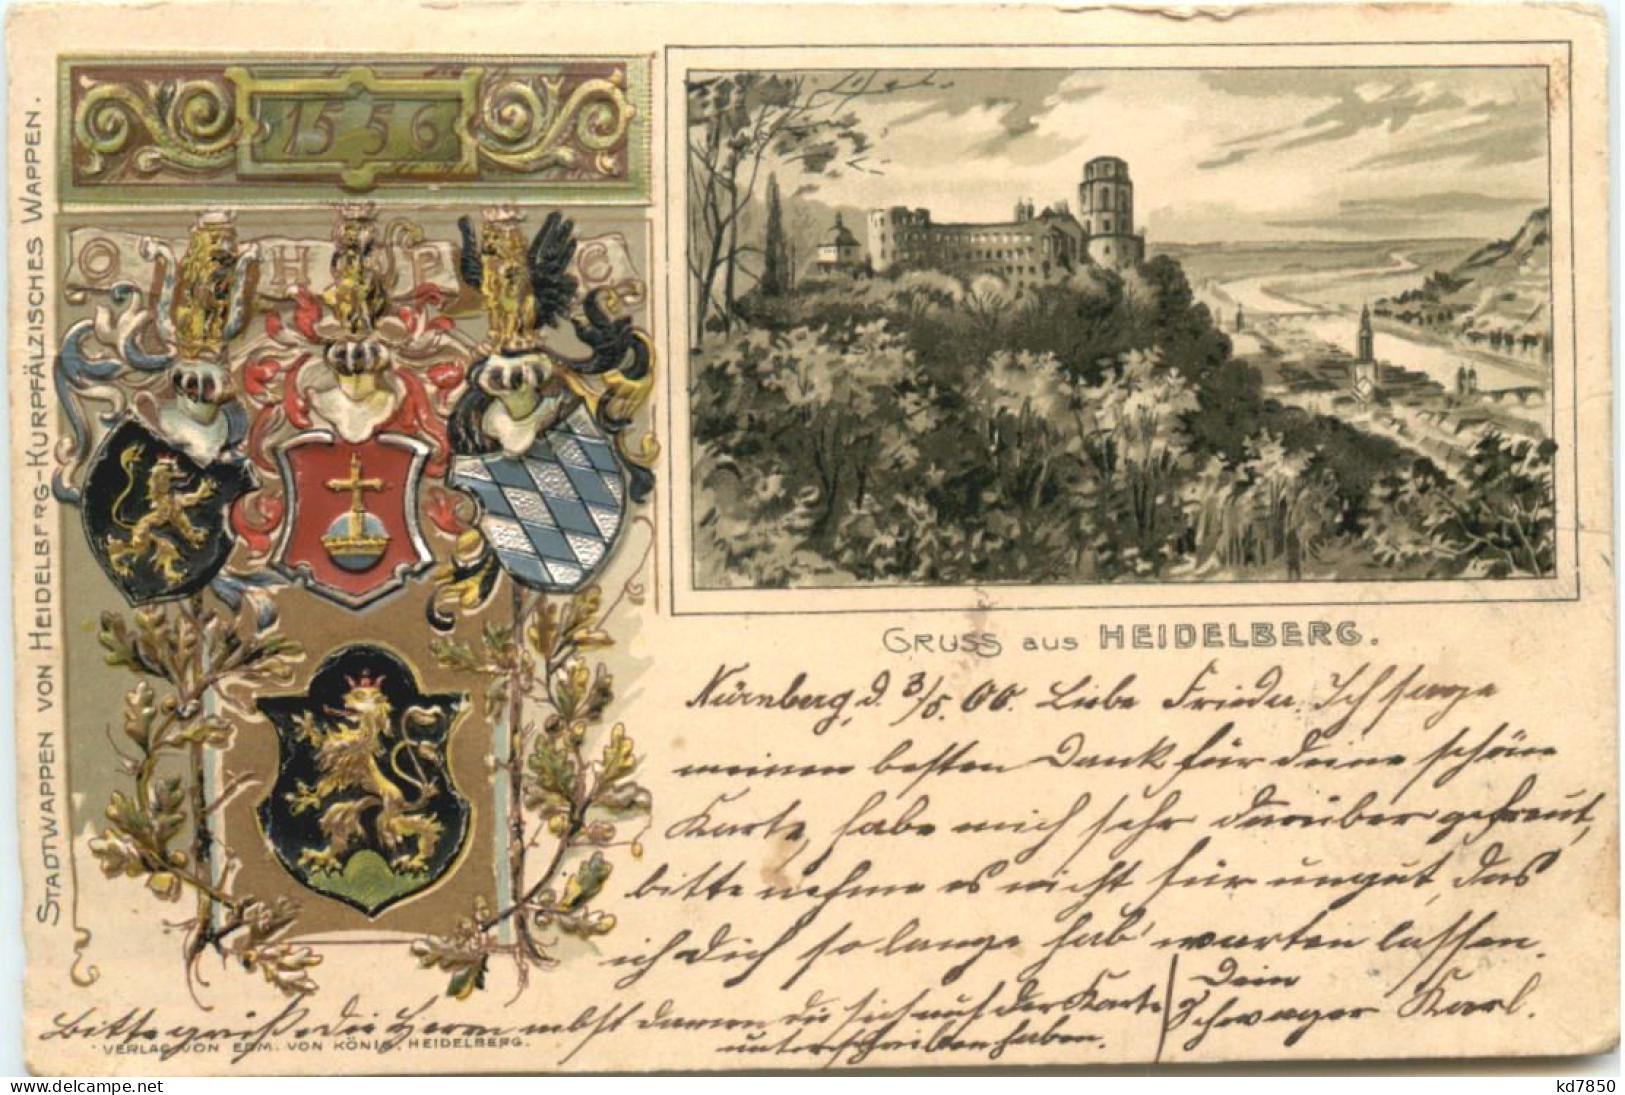 STADTWAPPEN VON HEIDELBERG-KURPFÄLZISCHES WAPPEN.
1556
O H P C
GRUSS AUS HEIDELBERG.
Nürnberg, d. 3/5. 00. Liebe Frieda. Ich sage
meinen besten Dank für Deine schöne
Karte, habe mich sehr darüber gefreut,
bitte nehme es nicht für ungut, das
ich Dich so lange hab' warten lassen.
Dein
Schwager Karl.
Bitte grüße die Herrn nebst Damen die sich auf der Karte
unterschrieben haben.
VERLAG VON EDM. VON KÖNIG, HEIDELBERG.
kd7850